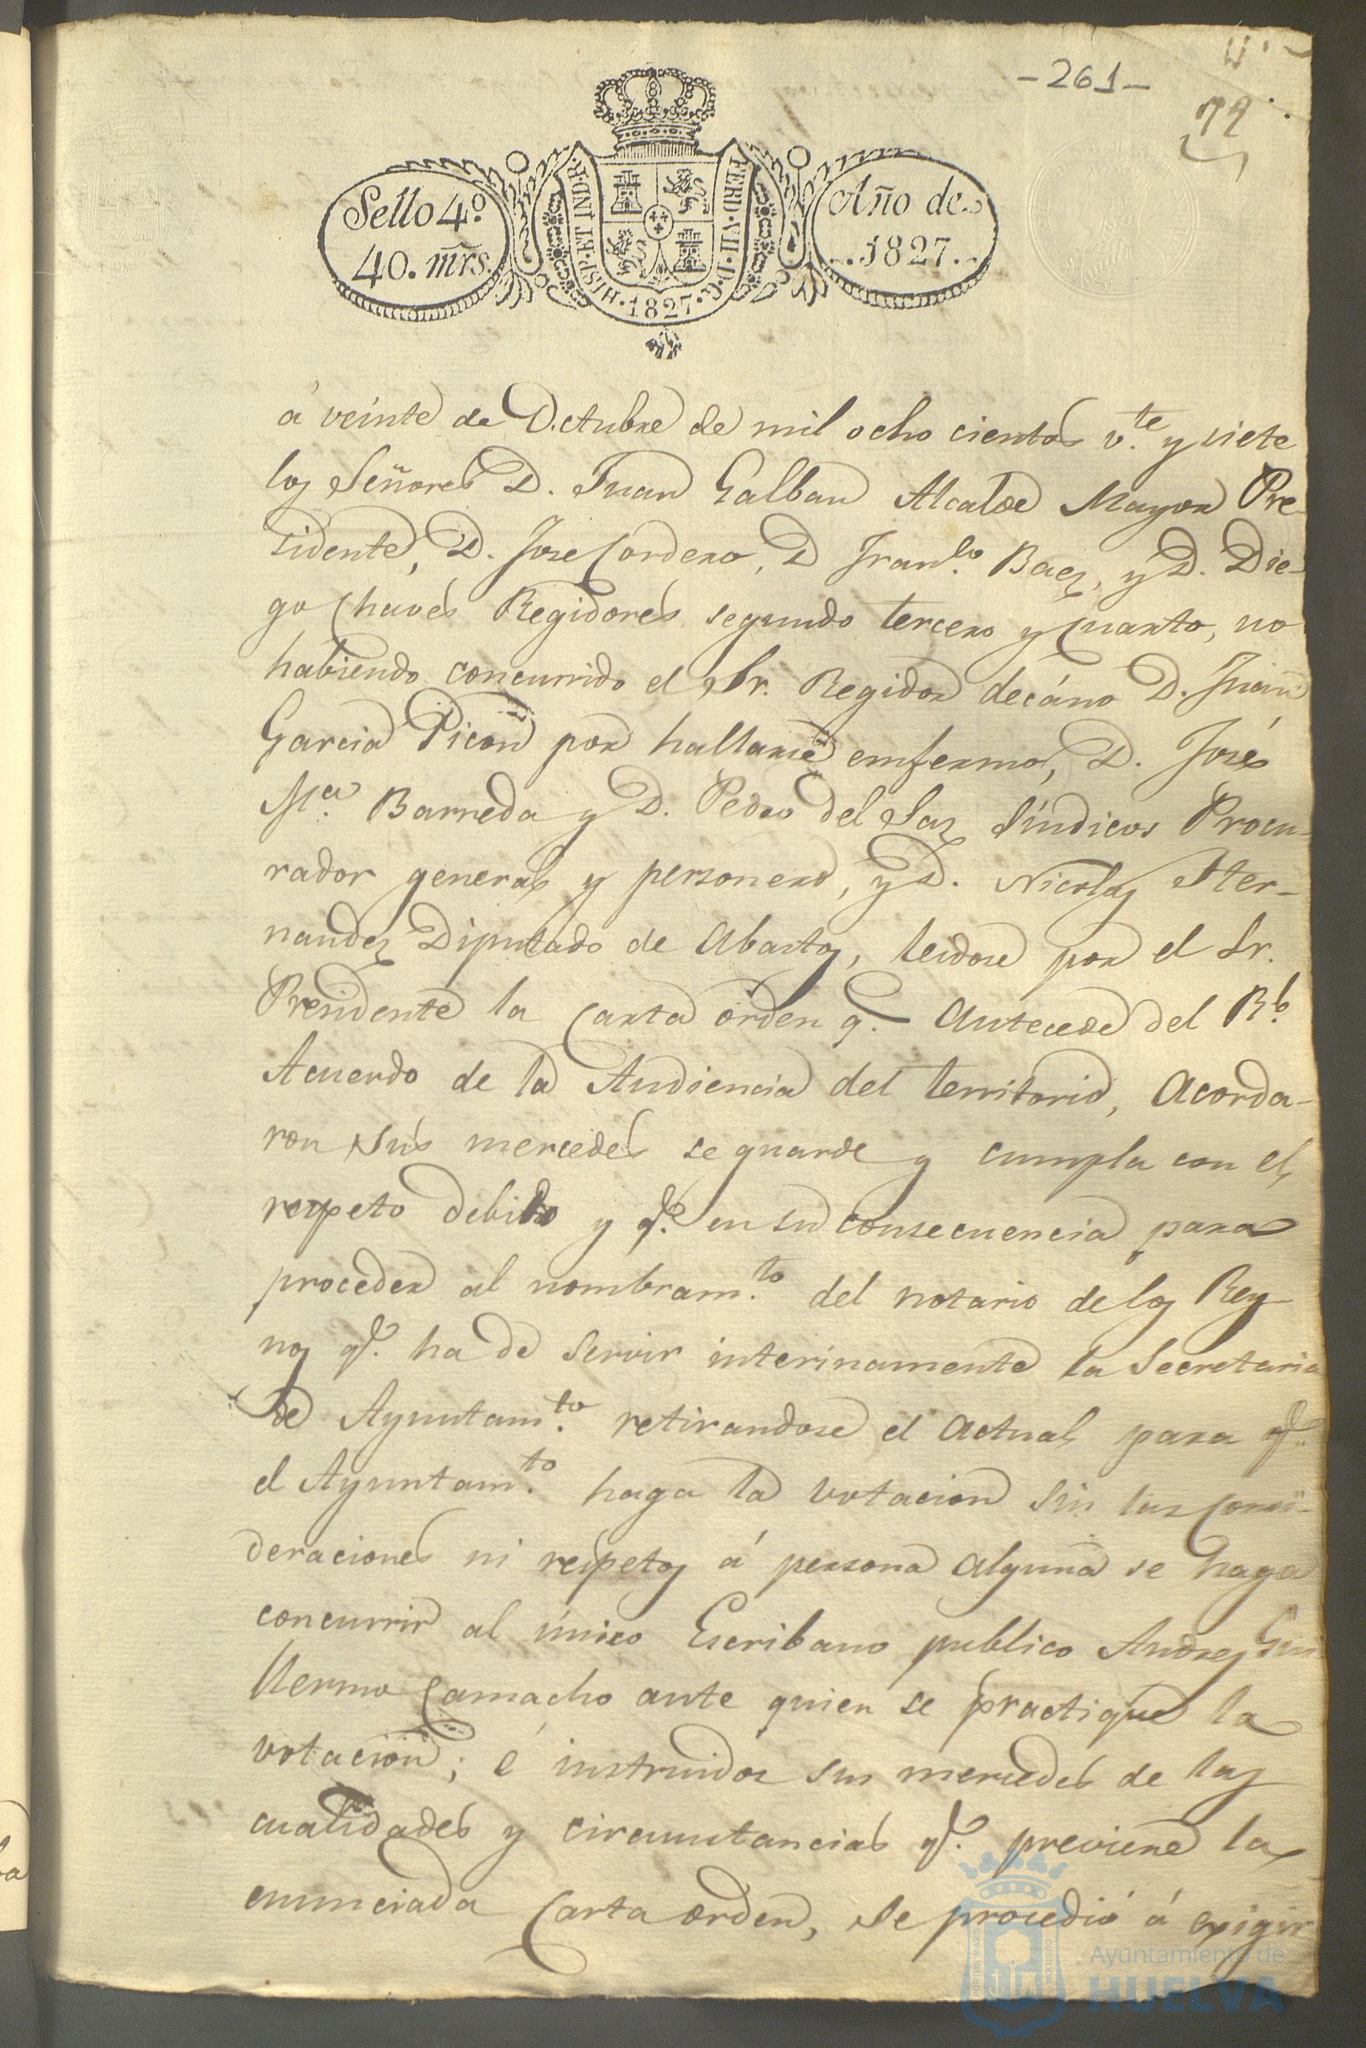 -261-
72
Sello 4º
40. mrs.
HISP. ET IND. R.
FERD. VII. D. G.
1827
Año de
1827.
á veinte de Octubre de mil ocho cientos v.te y siete
los Señores D. Juan Galban Alcalde Mayor Pre-
sidente, D. Jose Cordero, D Fran.co Baez, y D. Die-
go Chaves Regidores segundo tercero y Cuarto, no
habiendo concurrido el Sr. Regidor decáno D. Juan
Garcia Picon por hallarse emfermo, D. José
M.a Barreda y D. Pedro del Saz Síndicos Procu-
rador general y personero, y D. Nicolas Her-
nandez Diputado de Abastos, leidose por el Sr.
Presidente la Carta órden q.e antecede del R.l
Acuerdo de la Audiencia del territorio, acorda-
ron sus mercedes se guarde y cumpla con el
respeto debido y q.e en su consecuencia para
proceder al nombram.to del notario de los Rey-
nos q.e ha de servir interinamente la Secretaria
de Ayuntam.to retirandose el actual para q.e
el Ayuntam.to haga la votacion sin las Consi-
deraciones ni respetos á persona alguna se haga
concurrir al único Escribano publico Andres Gui
llermo Camacho ante quien se practique la
votacion; é instruidos sus mercedes de las
cualidades y circunstancias q.e previene la
enunciada Carta orden, se procedió á exigir
Ayuntamiento de
HUELVA